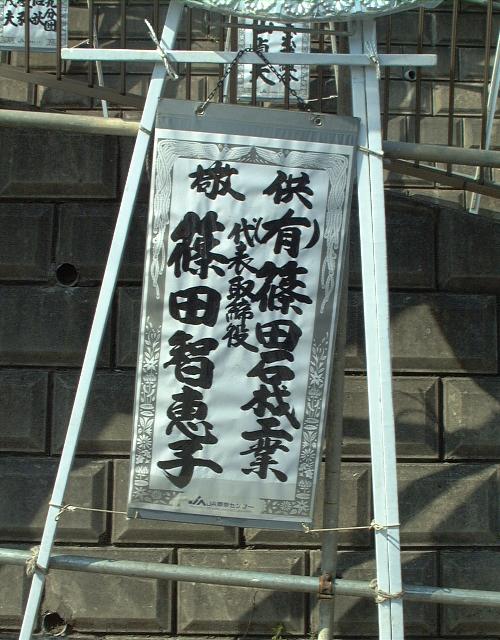 供
敬
(有)篠田石材工業
代表取締役
篠田智恵子